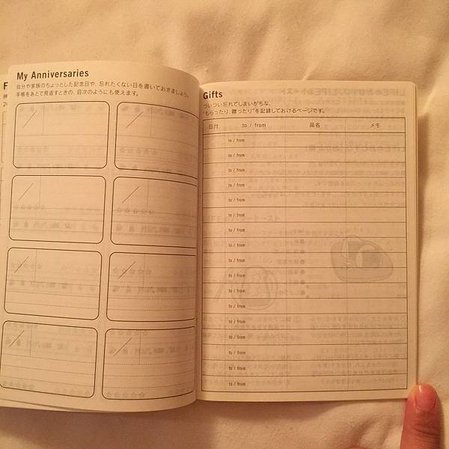 My Anniversaries
自分や家族のちょっとした記念日や、忘れたくない日を書いておきましょう。
手帳をあとで見返すときの、目次のようにも使えます。
Gifts
ついつい忘れてしまいがちな、
“もらったり、贈ったり”を記録しておけるページです。
日付 to / from 品名 メモ
to / from
to / from
to / from
to / from
to / from
to / from
to / from
to / from
to / from
to / from
to / from
to / from
to / from
to / from
to / from
to / from
to / from